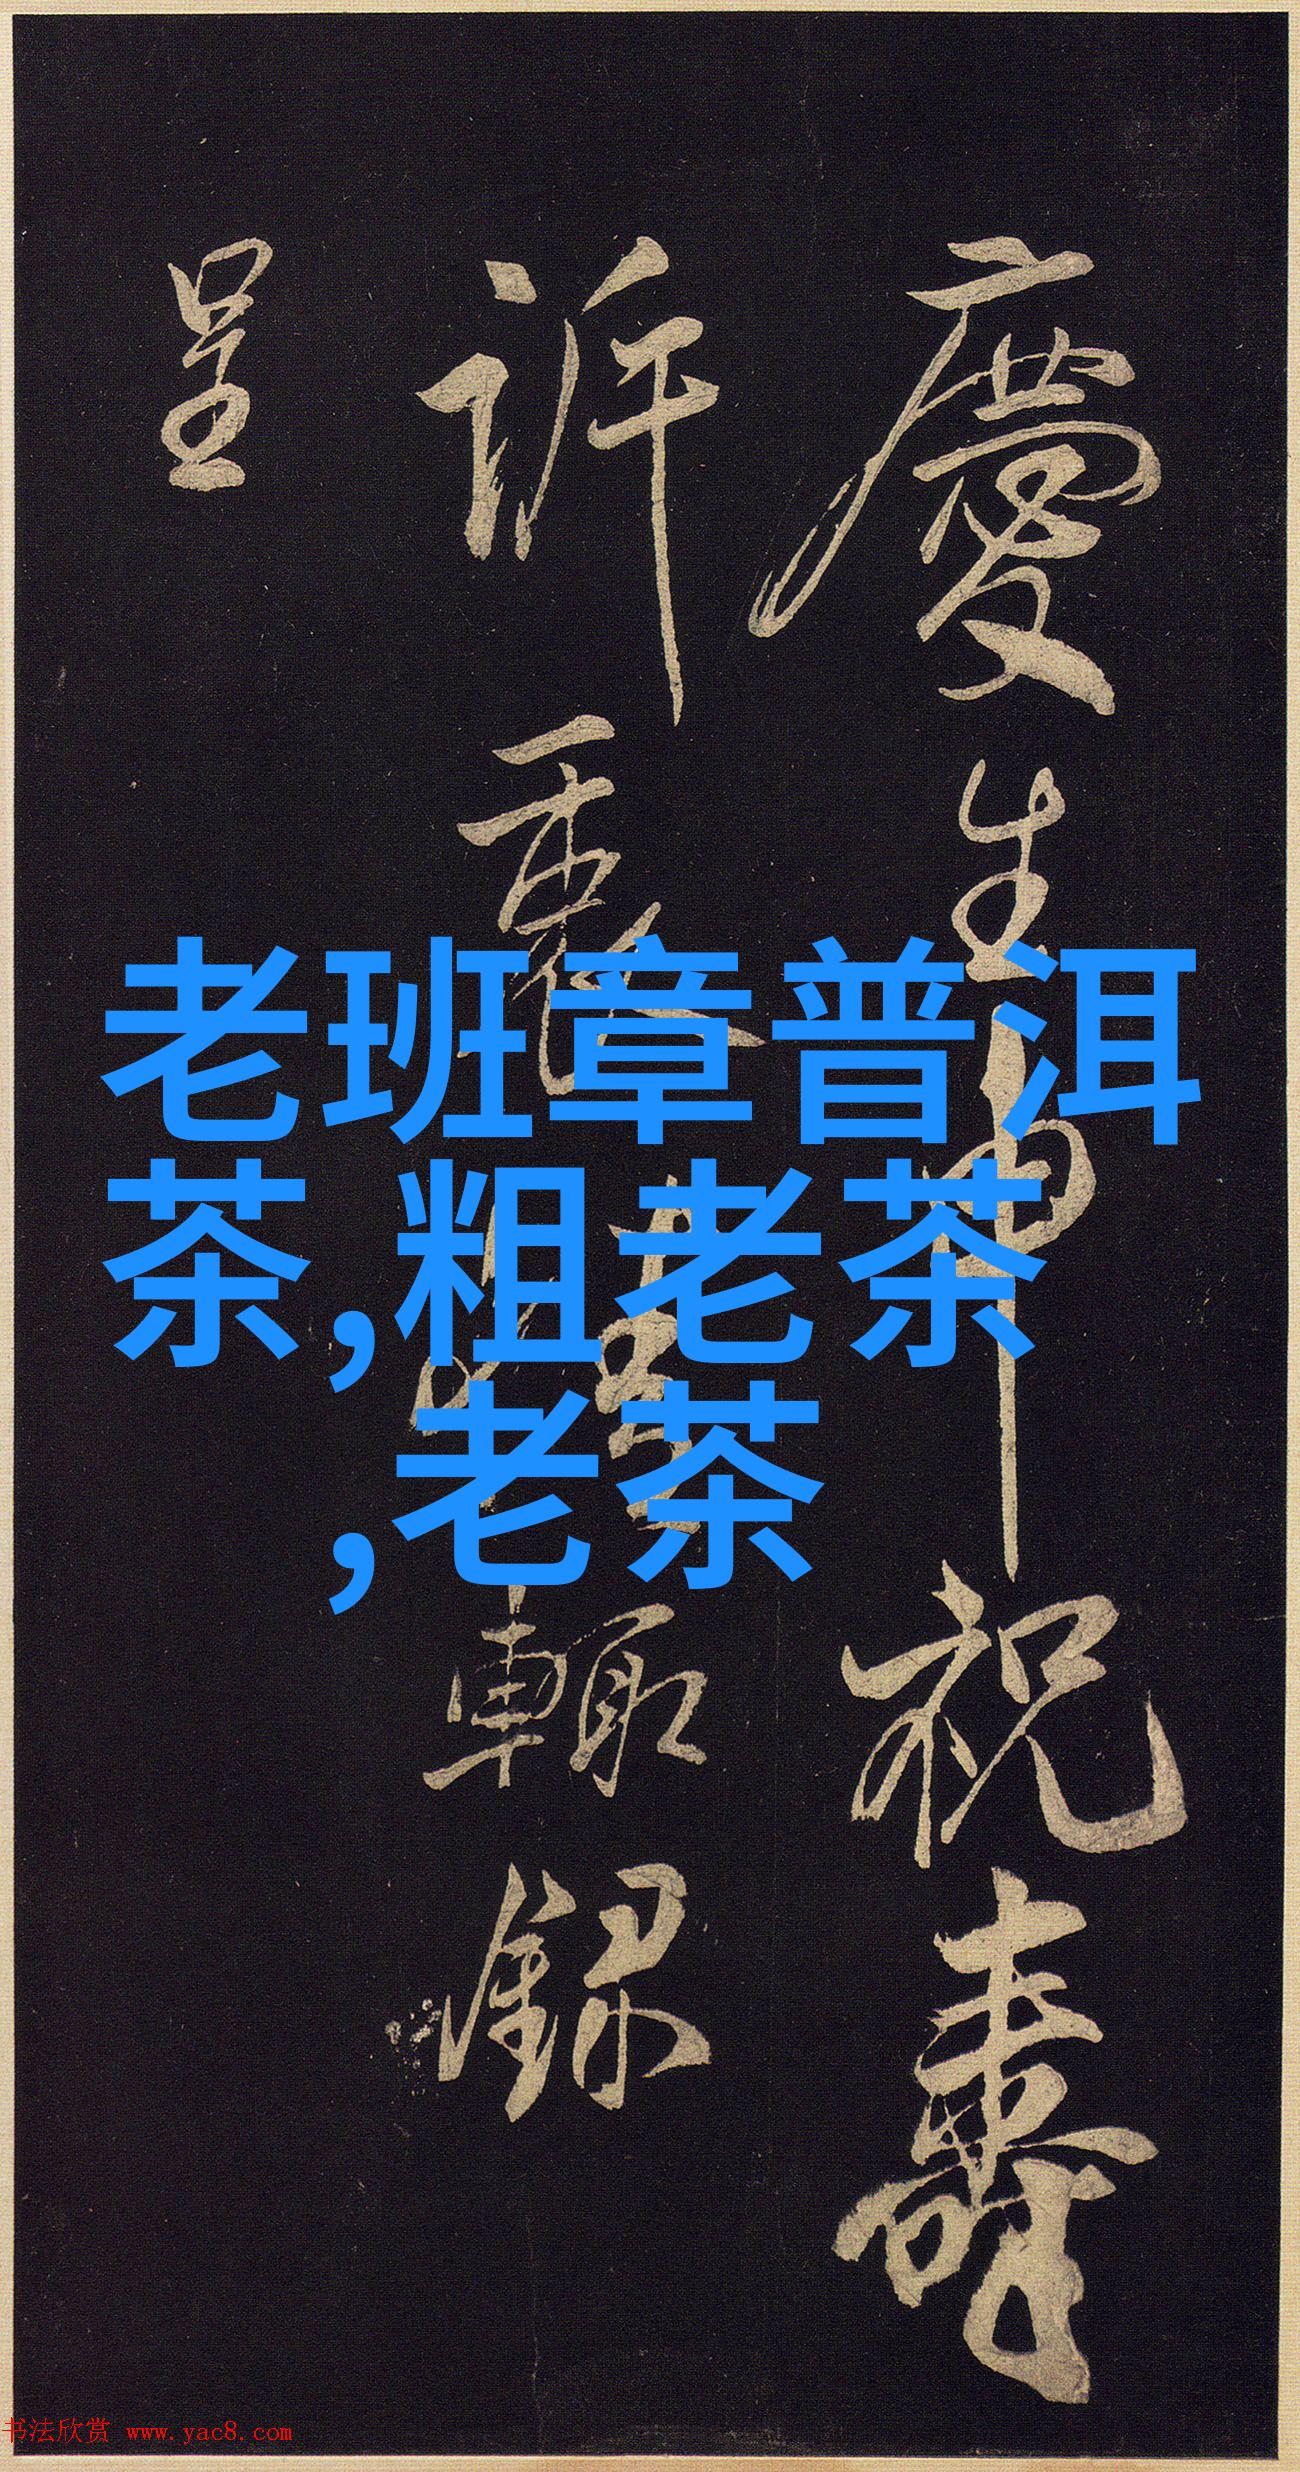 慶生申祝壽
訢衷
輙錄
呈
老班章普洱
茶,粗老茶
,老茶
书法欣赏 www.yac8.com